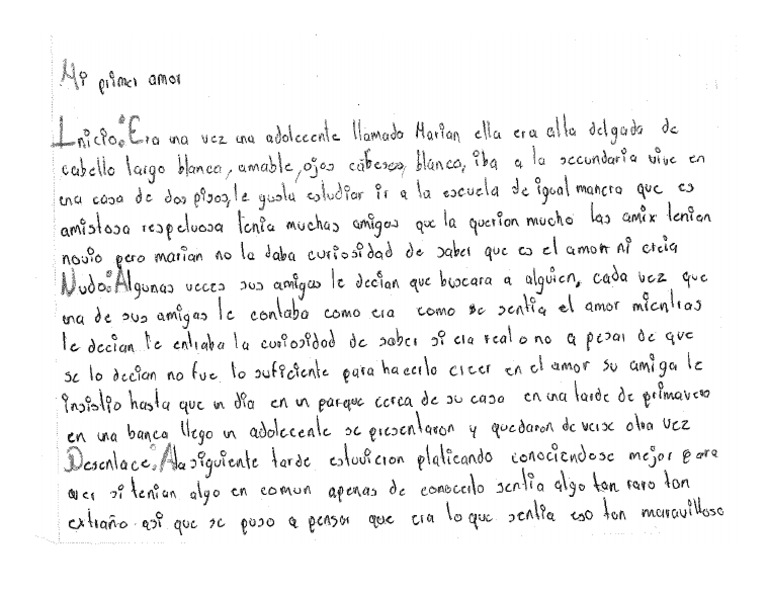 Mi primer amor
Inicio: Era una vez una adolecente llamado Marian ella era alta delgada de
cabello largo blanca, amable, ojos cafeses, blanca, iba a la secundaria vive en
una casa de dos pisos, le gusta estudiar ir a la escuela de igual manera que es
amistosa respetuosa tenia muchas amigas que la querian mucho las amix tenian
novio pero marian no la daba curiosidad de saber que es el amor ni creia
Nudo: Algunas veces sus amigas le decian que buscara a alguien, cada vez que
una de sus amigas le contaba como era como se sentia el amor mientras
le decian le entraba la curiosidad de saber si era real o no a pesar de que
se lo decian no fue lo suficiente para hacerlo creer en el amor su amiga le
insistio hasta que un dia en un parque cerca de su casa en una tarde de primavera
en una banca llego un adolecente se presentaron y quedaron de verse otra vez
Desenlace: Ala siguiente tarde estuvieron platicando conociendose mejor para
ver si tenian algo en comun apenas de conocerlo sentia algo tan raro tan
extraño asi que se puso a pensar que era lo que sentia eso tan maravilloso